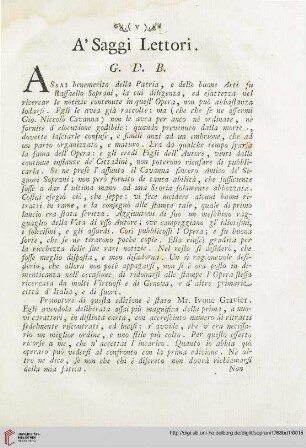 ( v )
A' Saggi Lettori.
G. D. B.
ASSAI benemerito della Patria, e delle buone Arti fu
Raffaello Soprani, la cui diligenza, ed esattezza nel
ricercar le notizie contenute in quest' Opera, non può abbastanza
lodarsi. Egli le avea già raccolte: ma (che che se ne assermi
Gio. Niccolò Cavanna) non le avea per anco nè ordinate, nè
fornite d'elocuzione godibile: quando prevenuto dalla morte,
dovette lasciarle confuse, e simili anzi ad un embrione, che ad
un parto organizzato, e maturo. Era da qualche tempo sparsa
la fama dell' Opera: e gli eredi Figli dell' Autore, vinti dalle
continue instanze de' Cittadini, non poterono ricusar di pubbli-
carla. Se ne prese l'assunto il Cavanna suddetto Amico de' Si-
gnori Soprani; ma non fornito di tanta abilità, che
fosse a dar l'ultima mano ad una Storia solamente abbozzata.
Cossui eseguì ciò, che seppe: vi fece incidere alcuni buoni ri-
tratti in rame, e la consegnò alle stampe tale, quale di primo
lancio era stata stesa. Aggiuntavi di suo un meschino rag-
guaglio della Vita di esso Autore; ove campeggiano gl' idiotismi,
i solecismi, e gli assurdi. Così pubblicossi l'Opera; e fu buona
sorte, che se ne tirarono poche copie. Ella riuscì gradita per
la ricchezza delle sue rare notizie. Nel resto si desiderò, che
fosse meglio disposta, e men disadorna. Un sì ragionevole desi-
derio, che allora non potè appagarsi, non si è ora posto in di-
menticanza nell' occasione di ridonar alle stampe l'Opera stessa
ricercata da molti Virtuosi e di Genova, e d'altre primarie
città d'Italia, e di fuori.
Promotore di questa edizione è stato Mr. Ivone Gravier.
Egli avendola deliberata assai più magnifica della prima, a nuo-
vi caratteri, in distinta carta, con accresciuto numero di ritratti
fedelmente riscontrati, ed incisi: s'avvide, che v'era necessa-
rio un miglior ordine, e uno stile più colto. Per quello effetto
ricorse a me, che n'accettai l'incarico. Quanto in abbia quì
operato può vedersi al confronto con la prima edizione. Nè ul-
tro ne dico; se non che chi è discreto non dovrà richiamarsi
della mia fatica.
Non
http://digi.ub.uni-heidelberg.de/diglit/soprani1768bd1/0015